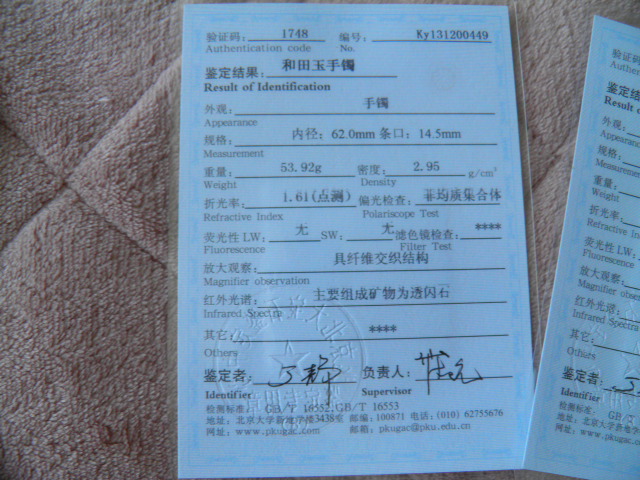 验证码: 1748 编号: Ky131200449
Authentication code No.
鉴定结果: 和田玉手镯
Result of Identification
外观: 手镯
Appearance
规格: 内径: 62.0mm 条口: 14.5mm
Measurement
重量: 53.92g 密度: 2.95 g/cm³
Weight Density
折光率: 1.61(点测) 偏光检查: 非均质集合体
Refractive Index Polariscope Test
荧光性 LW: 无 SW: 无 滤色镜检查: ****
Fluorescence Filter Test
放大观察: 具纤维交织结构
Magnifier observation
红外光谱: 主要组成矿物为透闪石
Infrared Spectra
其它: ****
Others
鉴定者: 负责人:
Identifier Supervisor
检测标准: GB/T 16552 GB/T 16553
地址: 北京大学新地学楼3438室 邮编: 100871 电话: (010) 62755676
网址: www.pkugac.com 邮箱: pkugac@pku.edu.cn
验证码
鉴定结
外观:
Appearance
规格:
Measurement
重量:
Weight
折光率:
Refractive In
荧光性
Fluorescence
放大观察:
Magnifier obser
红外光谱:
Infrared Spect
其它:
Others
鉴定者:
Identifier